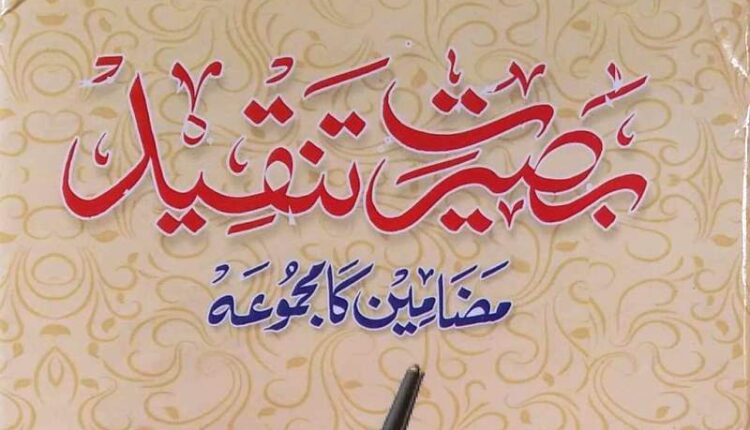 بصیرت تنقید
مضامین کا مجموعہ